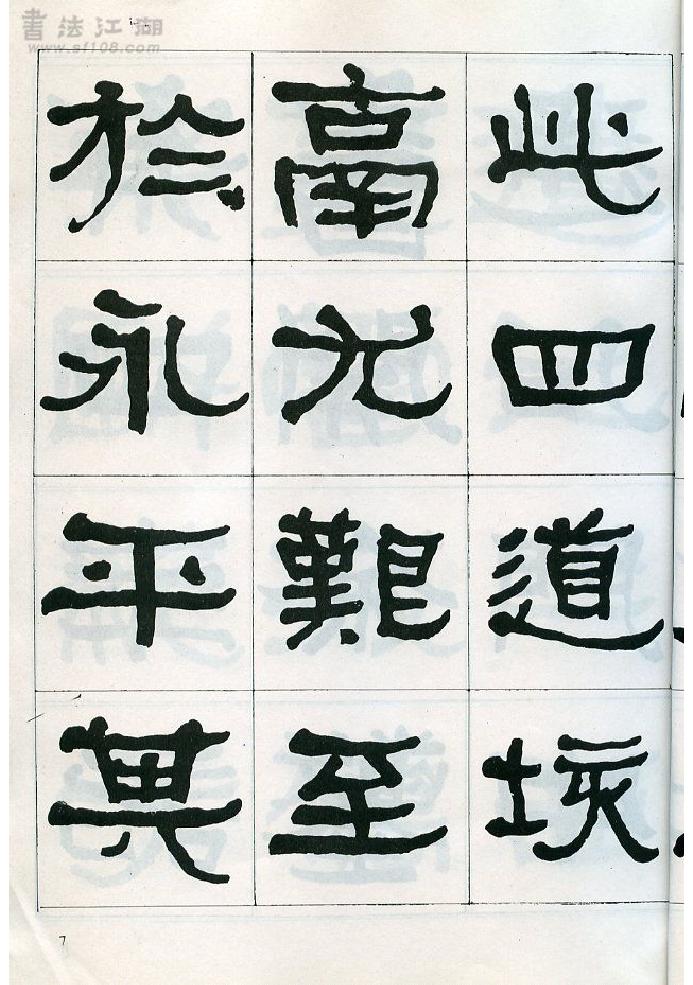 書法江湖
www.sf108.com
此四道垓
鬲尤艱至
於永平其
7